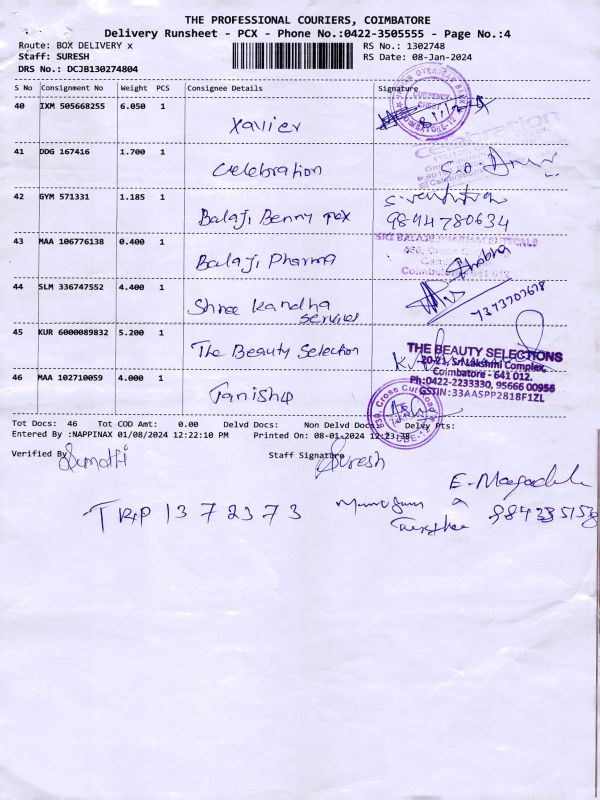 THE PROFESSIONAL COURIERS, COIMBATORE
Delivery Runsheet - PCX - Phone No.:0422-3505555 - Page No.:4
Route: BOX DELIVERY x RS No.: 1302748
Staff: SURESH RS Date: 08-Jan-2024
DRS No.: DCJB130274804
S No Consignment No Weight PCS Consignee Details Signature
40 IXM 505668255 6.050 1
Xavier
OVERSEAS BANK
CURRENCY CHEST
COIMBATORE-12
41 DDG 167416 1.700 1
Celebration
Celebration
42 GYM 571331 1.185 1
Balaji Benny
9894780634
43 MAA 106776138 0.400 1
Balaji Pharma
SRI BALAJI PHARMACEUTICALS
Coimbatore-641 012
Prabha
44 SLM 336747552 4.400 1
Shree Kandha
Services
7373707678
45 KUR 6000089832 5.200 1
The Beauty Selection
THE BEAUTY SELECTIONS
20-21, Sri Lakshmi Complex,
Coimbatore - 641 012.
Ph:0422-2233330, 95666 00956
GSTIN:33AASPP2818F1ZL
46 MAA 102710059 4.000 1
Tanishq
Cross Cut Road
CBE-12
Tot Docs: 46 Tot COD Amt: 0.00 Delvd Docs: Non Delvd Docs: Delvy Pts:
Entered By :NAPPINAX 01/08/2024 12:22:10 PM Printed On: 08-01-2024 12:23:38
Verified By Sumathi Staff Signature Suresh
TRP 1372373